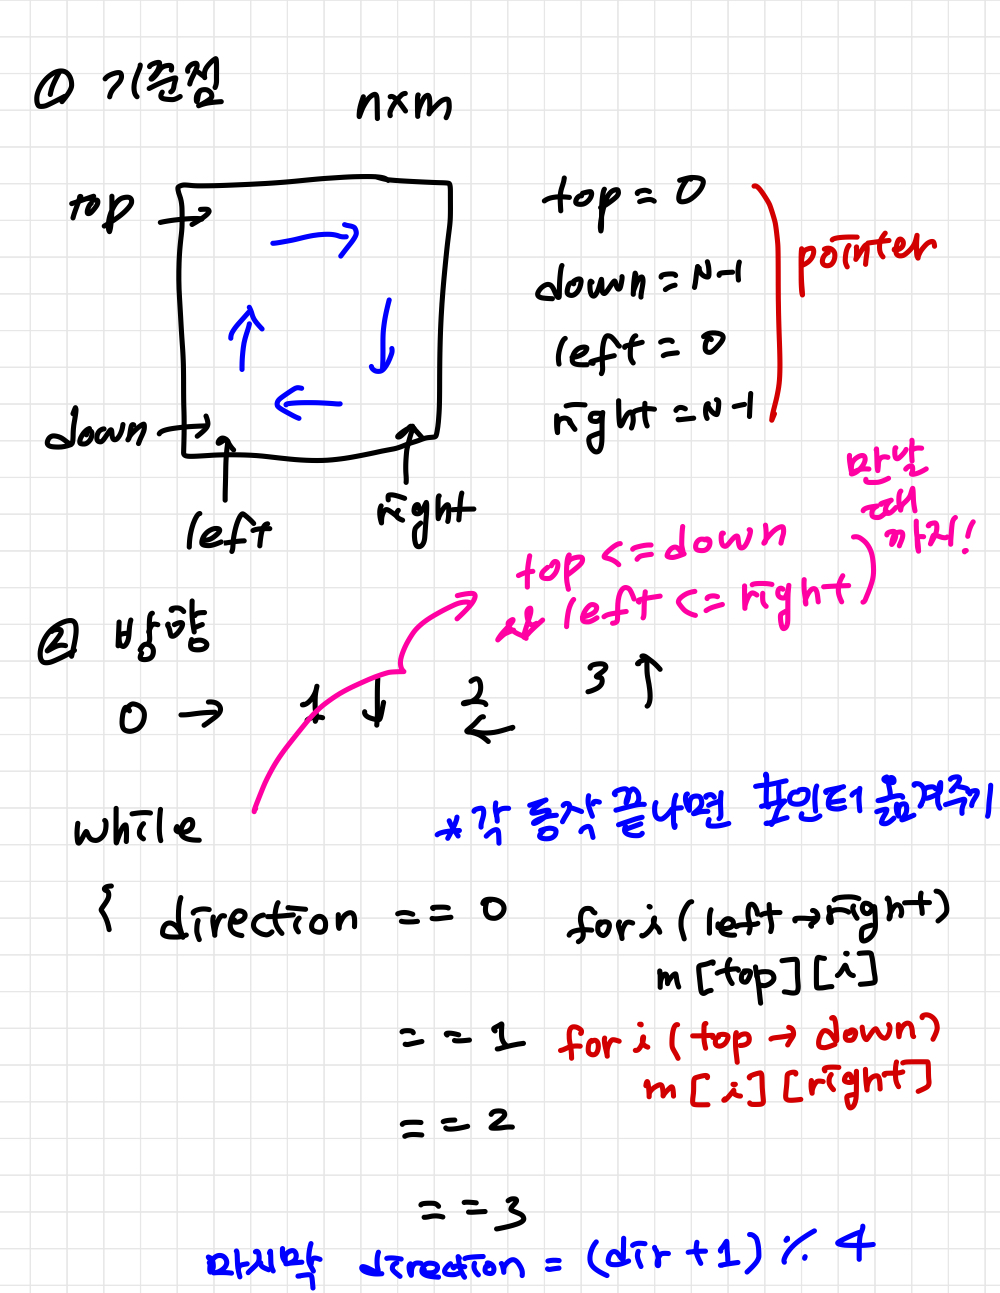 ① 기준점
n×m
top
top = 0
down = N-1
pointer
left = 0
right = N-1
down
left
right
만날
때
까지!
top <= down
left <= right
② 방향
0 → 1 ↓ 2 ← 3 ↑
while
* 각 동작 끝나면 포인터 옮겨주기
{ direction == 0 for i (left → right)
m [top] [i]
== 1 for i (top → down)
m [i] [right]
== 2
== 3
마지막 direction = (dir + 1) % 4